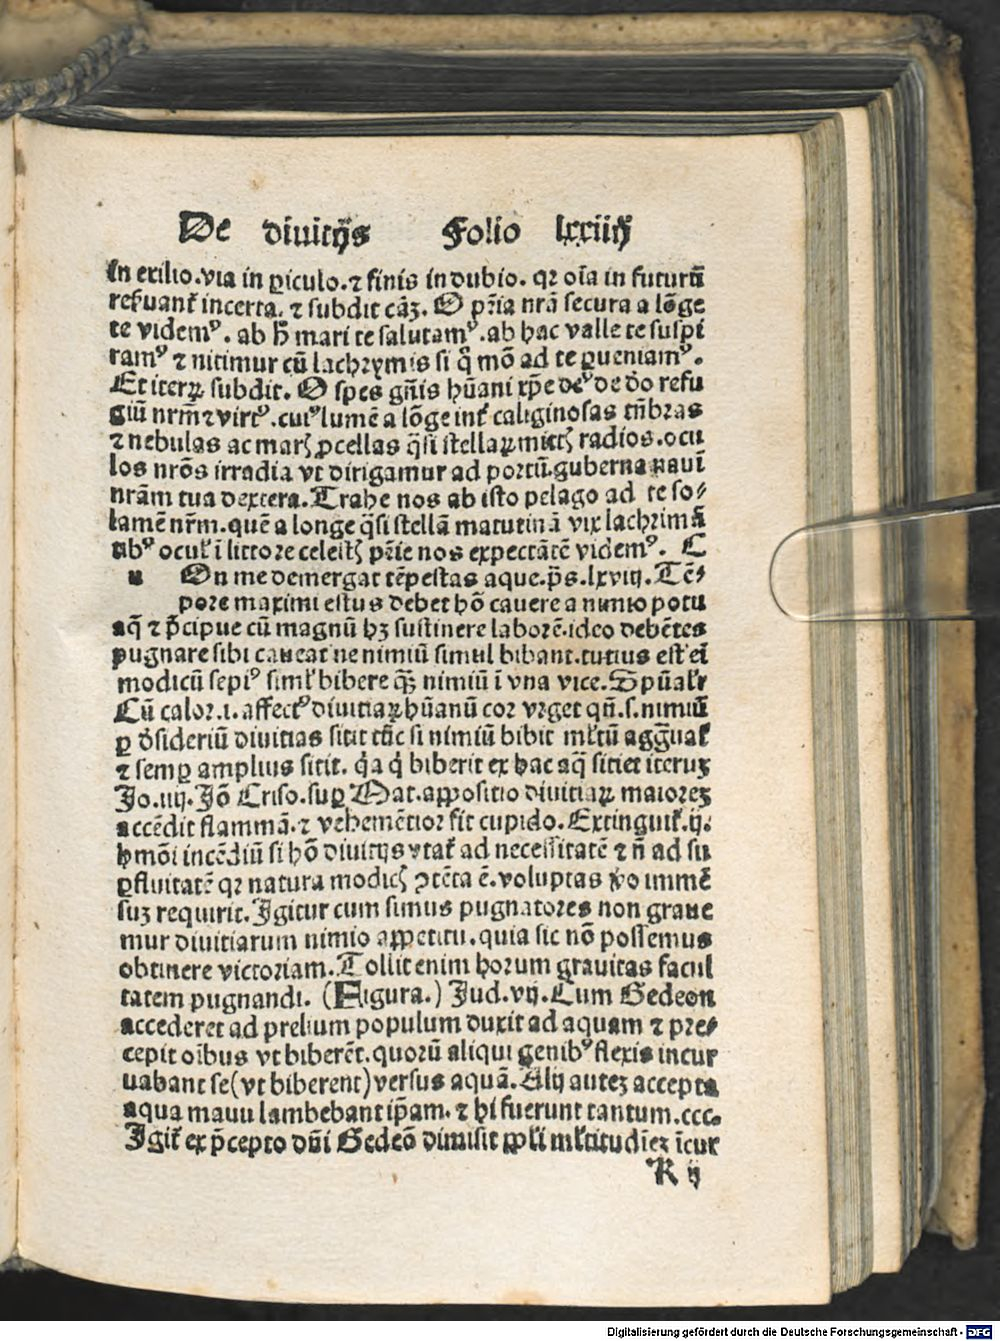 De diuitijs Folio lxxiiij
In exilio.via in ꝑiculo.⁊ finis in dubio. qꝛ oīa in futurū
reẜuant᷑ incerta. ⁊ subdit cāꝫ. O pr̄ia nrā secura a lōge
te videmꝰ. ab h̄ mari te salutamꝰ.ab hac valle te suspi
ramꝰ ⁊ nitimur cū lachrymis si q̄ mō ad te ꝑueniamꝰ.
Et iteꝝ subdit. O spes gn̄is hūani xp̄e deꝰ de do refu
giū nrm̄ ⁊ virtꝰ.cuiꝰ lumē a lōge int᷑ caliginosas tn̄bras
⁊ nebulas ac marꝭ ꝓcellas q̄si stellaꝝ mittꝭ radios.ocu
los nrōs irradia vt dirigamur ad portū.guberna nauī
nrām tua dextera. Trahe nos ab isto pelago ad te so⸗
lamē nr̄m.quē a longe q̄si stellā matutinā vix lachrimā
tibꝰ ocul᷑ ī littore celestꝭ pr̄ie nos expectātē videmꝰ. C
n On me demergat tēpestas aque.ps̄.lxviij. Tē⸗
pore maximi estus debet hō cauere a nimio potu
aq̄ ⁊ p̄cipue cū magnū hꝫ sustinere laborē.ideo debētes
pugnare sibi caueāt ne nimiū simul bibant.tutius est eī
modicū sepiꝰ siml᷑ bibere qꝫ̄ nimiū ī vna vice. Sp̄ualr᷑
Cū calor.i.affectꝰ diuitiaꝝ hūanū cor vrget qn̄.s.nimiū
ꝑ d̓sideriū diuitias sitit tūc si nimiū bibit ml᷑tū agḡuat᷑
⁊ semꝑ amplius sitit. q̓a q̓ biberit ex hac aq̄ sitiet iteruꝫ
Jo.iiij. Jō Criso.suꝑ Mat.apꝓsitio diuitiaꝝ maioreꝫ
accēdit flammā.⁊ vehemētior fit cupido. Extinguit᷑.ij.
hmōi incēdiū si hō diuitijs vtat᷑ ad necessitatē ⁊ n̄ ad su
ꝑfluitatē qꝛ natura modicꝭ ꝯtēta ē.voluptas v̓o immē
suꝫ requirit. Igitur cum simus pugnatores non graue
mur diuitiarum nimio appetitu.quia sic nō possemus
obtinere victoriam. Tollit enim horum grauitas facul
tatem pugnandi. (Figura.) Jud.vij. Cum Gedeon
accederet ad prelium populum duxit ad aquam ⁊ pre⸗
cepit oībus vt biberēt.quorū aliqui genibꝰ flexis incur
uabant se (vt biberent) versus aquā. Alij auteꝫ accepta
aqua manu lambebant ip̄am.⁊ hi fuerunt tantum.ccc.
Igit᷑ ex p̄cepto dn̄i Gedeō dimisit ppl̄i ml᷑titudīeꝫ īcur
K ij
Digitalisierung gefördert durch die Deutsche Forschungsgemeinschaft - DFG